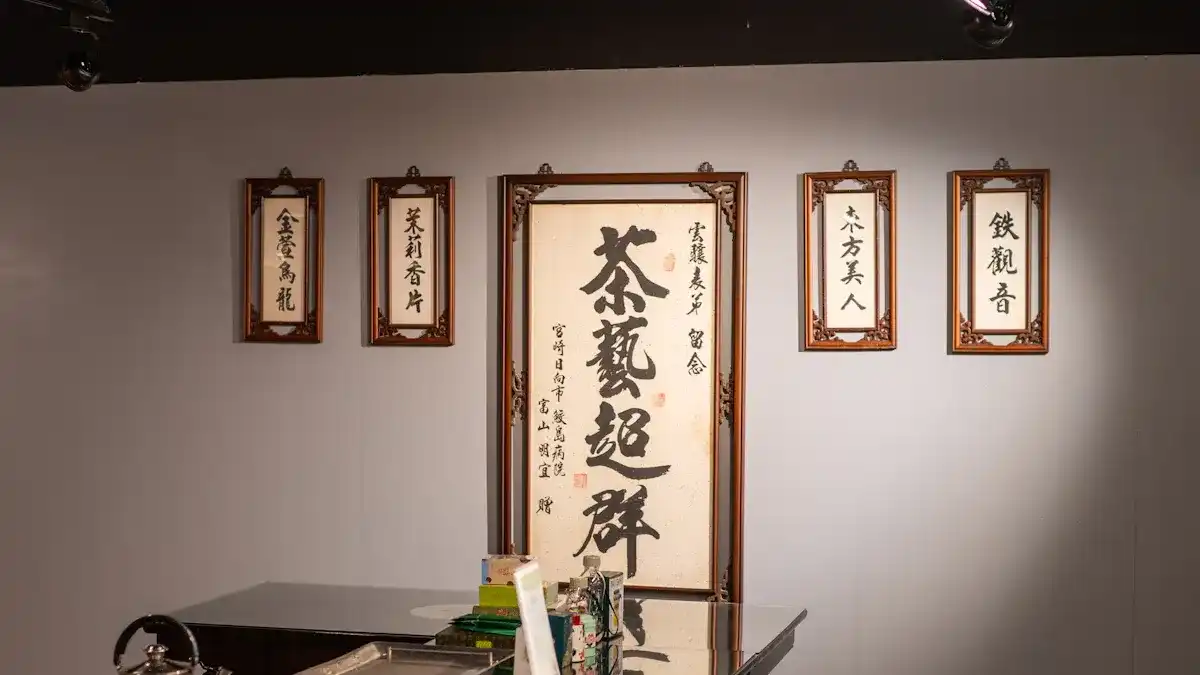 鉄觀音
東方美人
雲驤表弟 留念
茶藝超群
宮崎日向市 鮫島病院
富山明宜 贈
茉莉香片
金萱烏龍